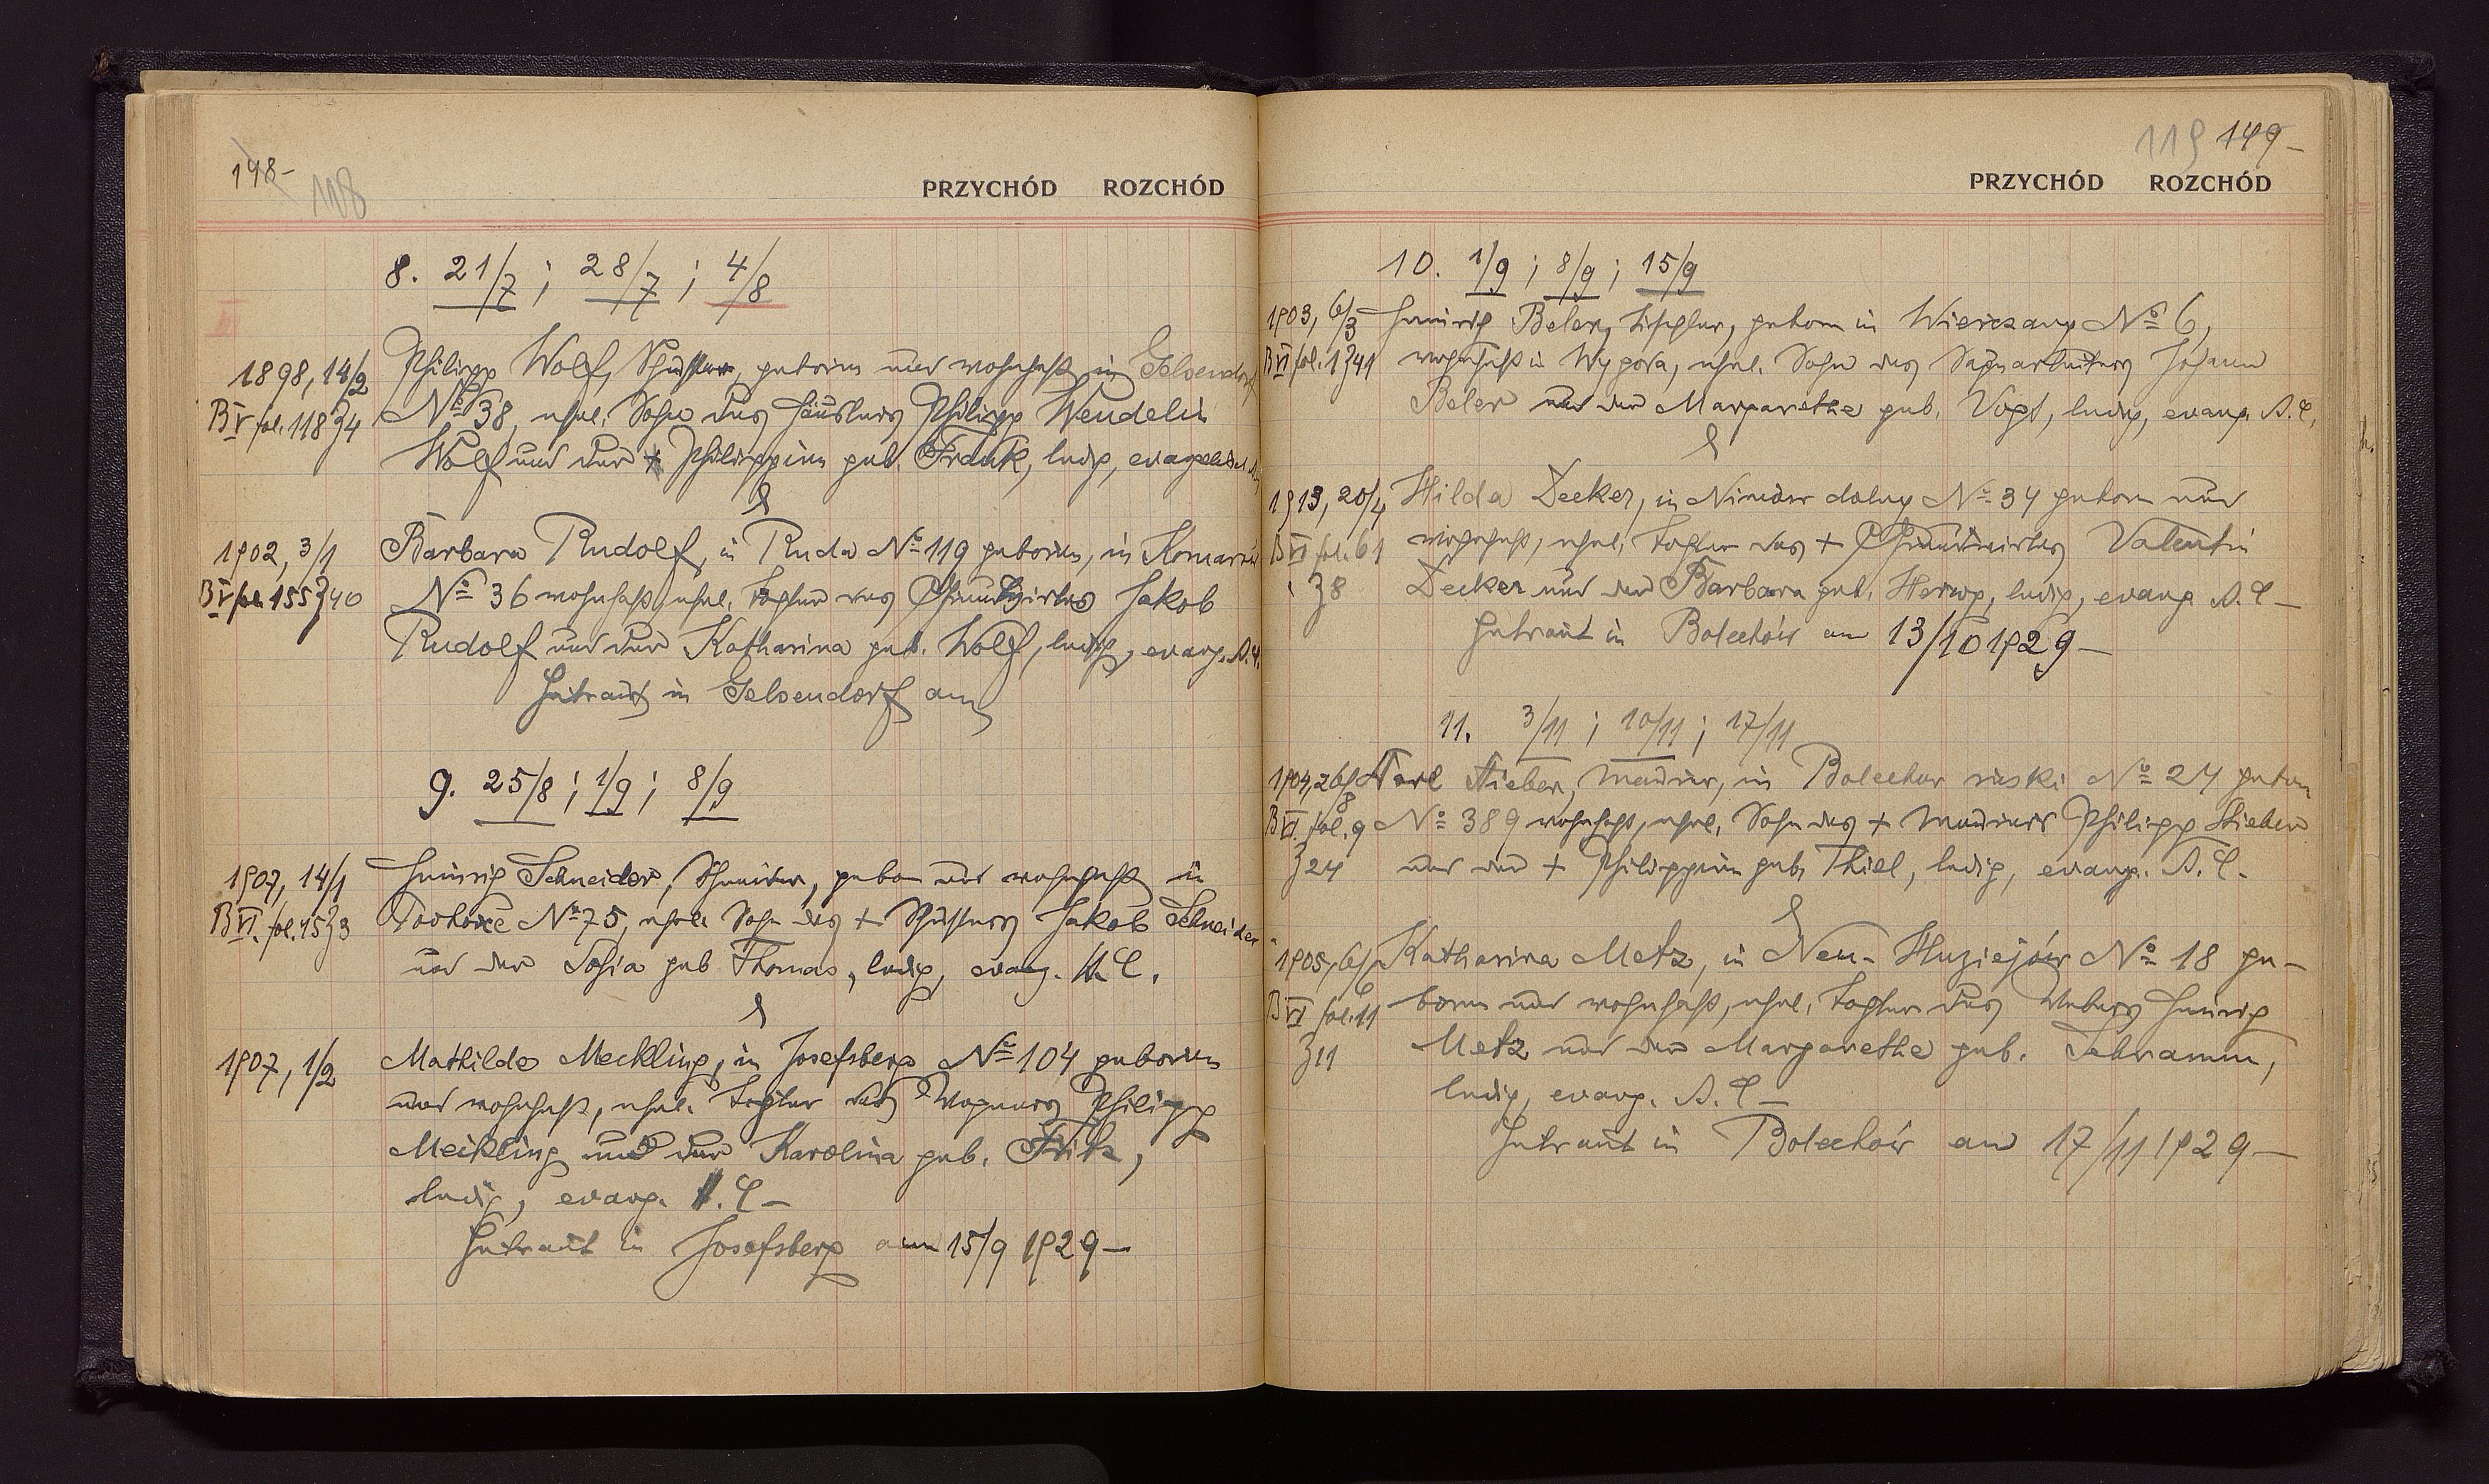 148-
108
PRZYCHÓD ROZCHÓD
8. 21/7 ; 28/7 ; 4/8
III
1898, 14/2
B V fol. 118 Z 4
Philipp Wolf, Schuster, geboren und wohnhaft in Gelsendorf
№ 38, ehel. Sohn des Häuslers Philipp Wendelin
Wolf und der + Philippine geb. Frank, ledig,
&
1902, 3/1
B V fol. 155 Z 40
Barbara Rudolf, in Ruda № 119 geboren, in
№ 36 wohnhaft, ehel. Tochter des Grundwirtes Jakob
Rudolf und der Katharina geb. Wolf, ledig, evang. A.
Getraut in Gelsendorf am
9. 25/8 ; 1/9 ; 8/9
1907, 14/1
B VI. fol. 15 Z 3
Heinrich Schneider, geboren und wohnhaft in
№ 75, ehel. Sohn des + Schusters Jakob Schneider
und der Sofia geb. Thomas, ledig, evang. C.
&
1907, 1/2
Mathilde Meckling, in Josefsberg № 104 geboren
und wohnhaft, ehel. Tochter des Wagners Philipp
Meckling und der Karolina geb. Fritz,
ledig, evang. C -
Getraut in Josefsberg am 15/9 1929 -
119 149-
PRZYCHÓD ROZCHÓD
10. 1/9 ; 8/9 ; 15/9
1903, 6/3
B VI fol. 1 Z 41
Heinrich Beler, Tischler, geboren in Wierczany № 6,
wohnhaft in Wygoda, ehel. Sohn des Sägearbeiters Johann
Beler und der Margarethe geb. Vogt, ledig, evang. A. C,
&
1913, 20/4
B VI fol. 61
Z 8
Hilda Decker, in Niniów dolny № 34 geboren und
wohnhaft, ehel. Tochter des + Grundwirtes Valentin
Decker und der Barbara geb. Herwy, ledig, evang. A. C -
Getraut in Bolechów am 13/10 1929 -
11. 3/11 ; 10/11 ; 17/11
1904, 26/8
B VI. fol. 9
Z 24
Karl Stieber, Maurer, in Bolechow ruski № 24 geboren
№ 389 wohnhaft, ehel. Sohn des + Maurers Philipp Stieber
und der + Philippine geb. Thiel, ledig, evang. A. C -
&
1905, 6/6
B VI fol. 11
Z 11
Katharina Metz, in Neu-Huziejów № 18 ge-
boren und wohnhaft, ehel. Tochter des Webers Heinrich
Metz und der Margarethe geb. Schramm,
ledig, evang. A. C -
Getraut in Bolechów am 17/11 1929 -